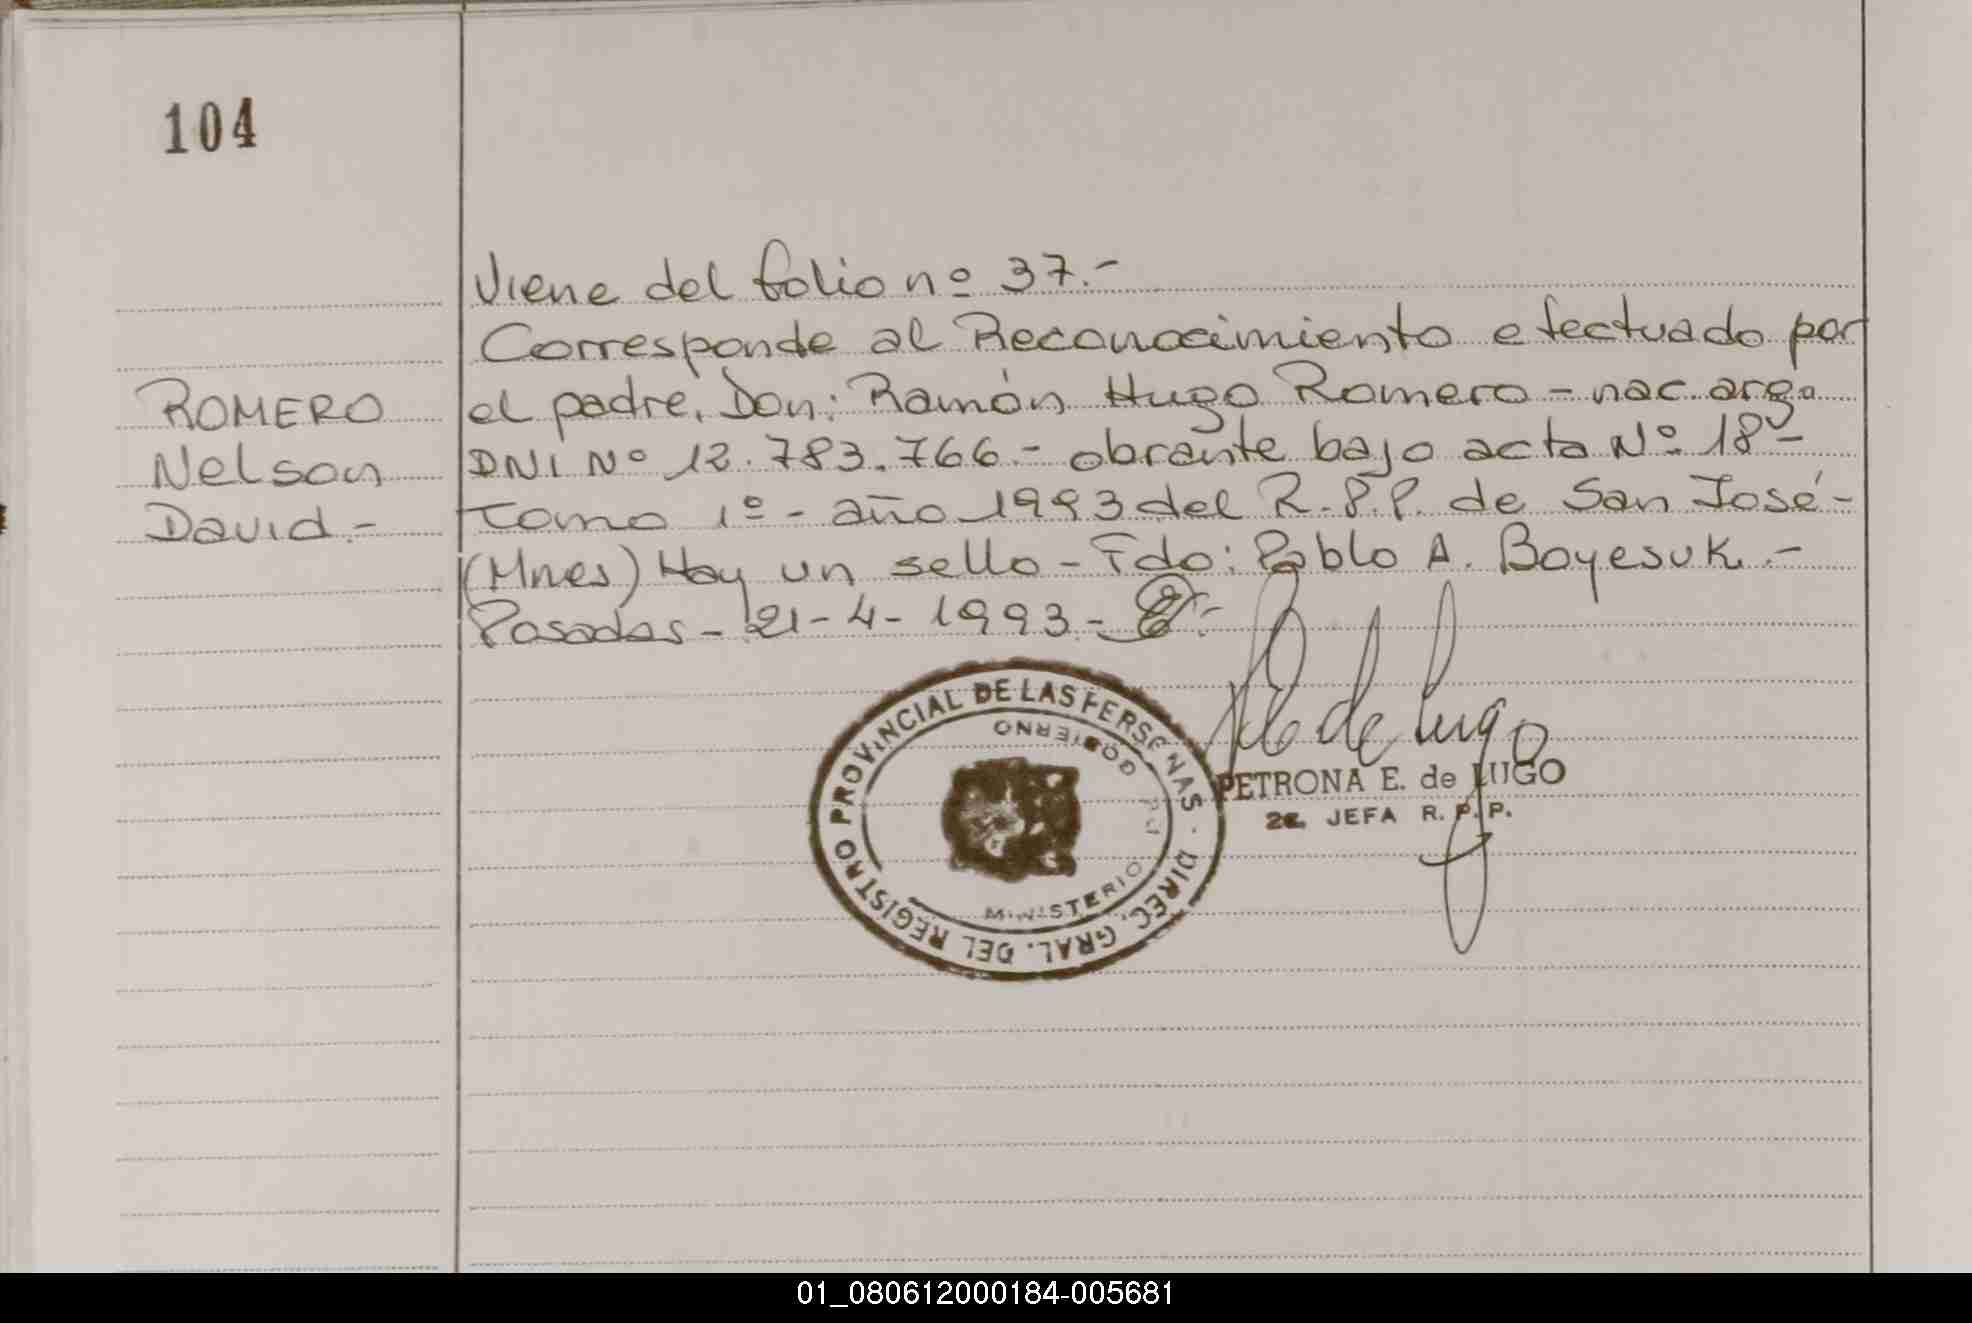 104
Viene del folio nº 37.-
Corresponde al Reconocimiento efectuado por
ROMERO el padre, Don: Ramón Hugo Romero - nac. arg.
Nelson DNI Nº 12.783.766.- obrante bajo acta Nº 18 -
David.- tomo 1º - año 1993 del R.P.P. de San José -
(Mnes) Hay un sello - Fdo: Pablo A. Boyesuk.-
Posadas - 21-4-1993.-
DIREC. GRAL. DEL REGISTRO PROVINCIAL DE LAS PERSONAS
MINISTERIO GOBIERNO
P E de Lugo
PETRONA E. de LUGO
2a. JEFA R.P.P.
01_080612000184-005681